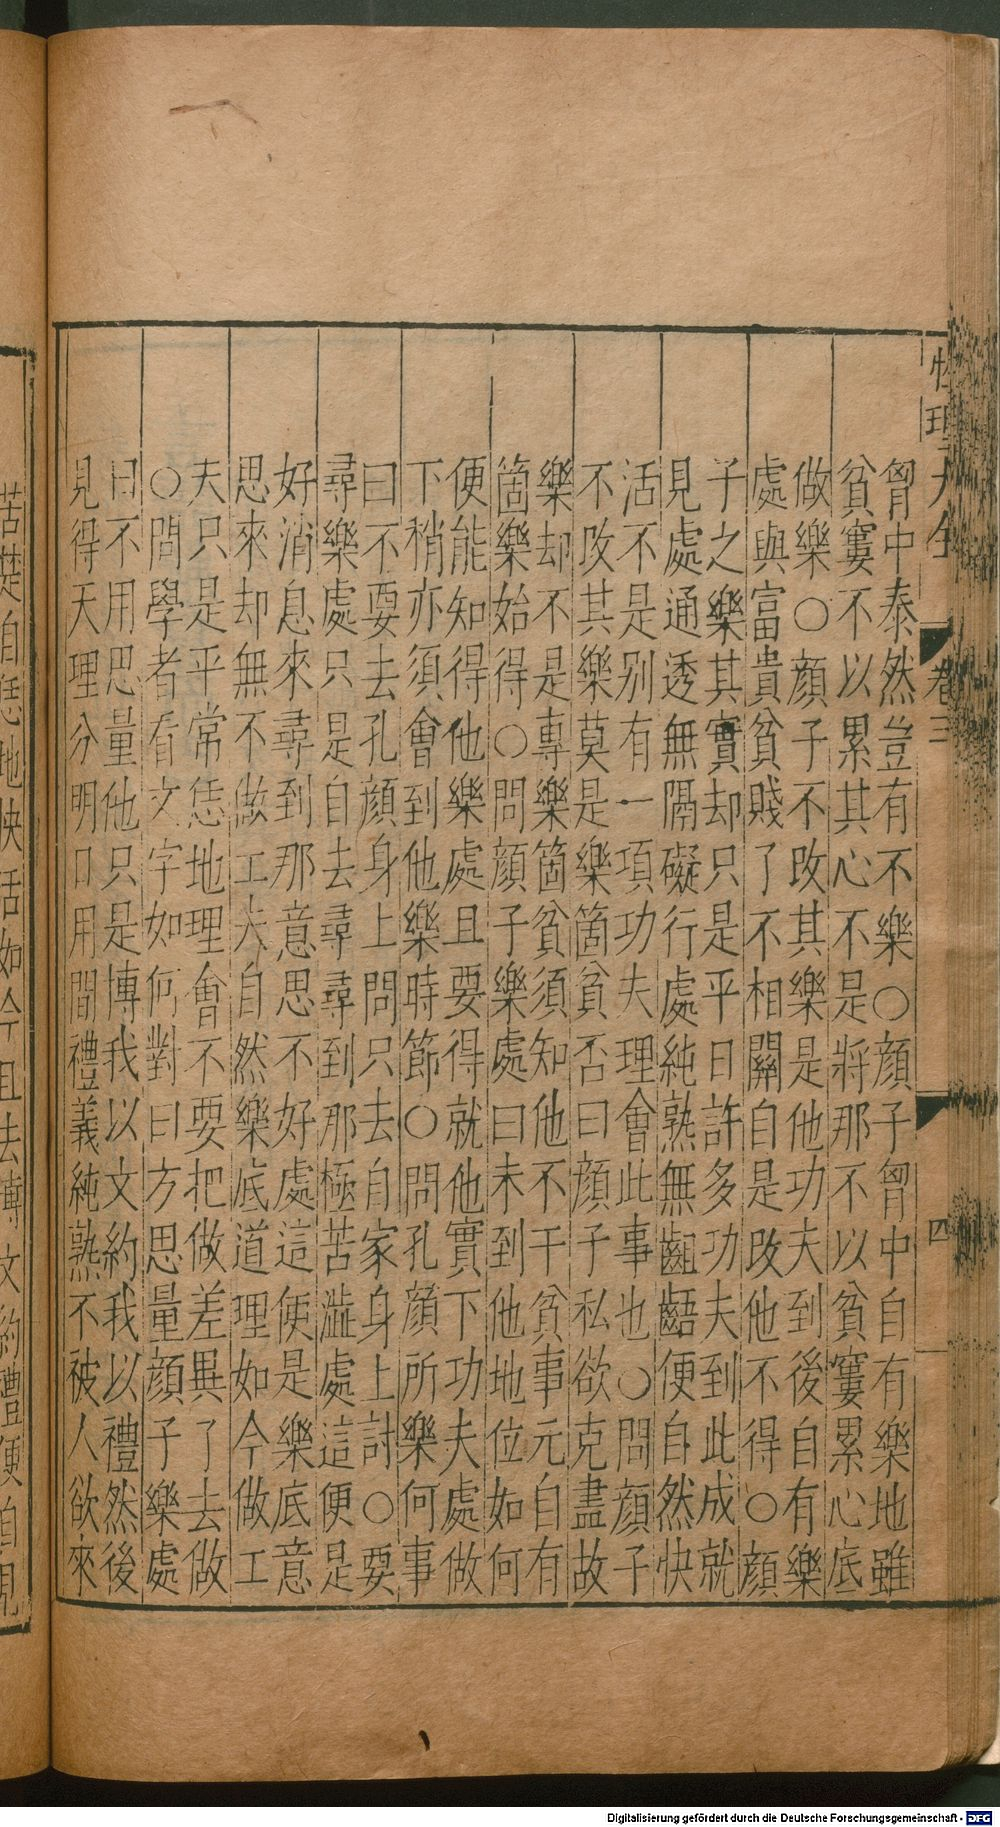 性理大全 卷三 四
胷中泰然豈有不樂○顔子胷中自有樂地雖
貧窶不以累其心不是將那不以貧窶累心底
做樂○顔子不改其樂是他功夫到後自有樂
處與富貴貧賤了不相關自是改他不得○顔
子之樂其實却只是平日許多功夫到此成就
見處通透無隔礙行處純熟無齟齬便自然快
活不是别有一項功夫理會此事也○問顔子
不改其樂莫是樂箇貧否曰顔子私欲克盡故
樂却不是專樂箇貧須知他不干貧事元自有
箇樂始得○問顔子樂處曰未到他地位如何
便能知得他樂處且要得就他實下功夫處做
下稍亦須會到他樂時節○問孔顔所樂何事
曰不要去孔顔身上問只去自家身上討○要
尋樂處只是自去尋尋到那極苦澁處這便是
好消息來尋到那意思不好處這便是樂底意
思來却無不做工夫自然樂底道理如今做工
夫只是平常恁地理會不要把做差異了去做
○問學者看文字如何對曰方思量顔子樂處
曰不用思量他只是博我以文約我以禮然後
見得天理分明日用間禮義純熟不被人欲來
苦楚自恁地快活如今且去博文約禮便自見
Digitalisierung gefördert durch die Deutsche Forschungsgemeinschaft - DFG